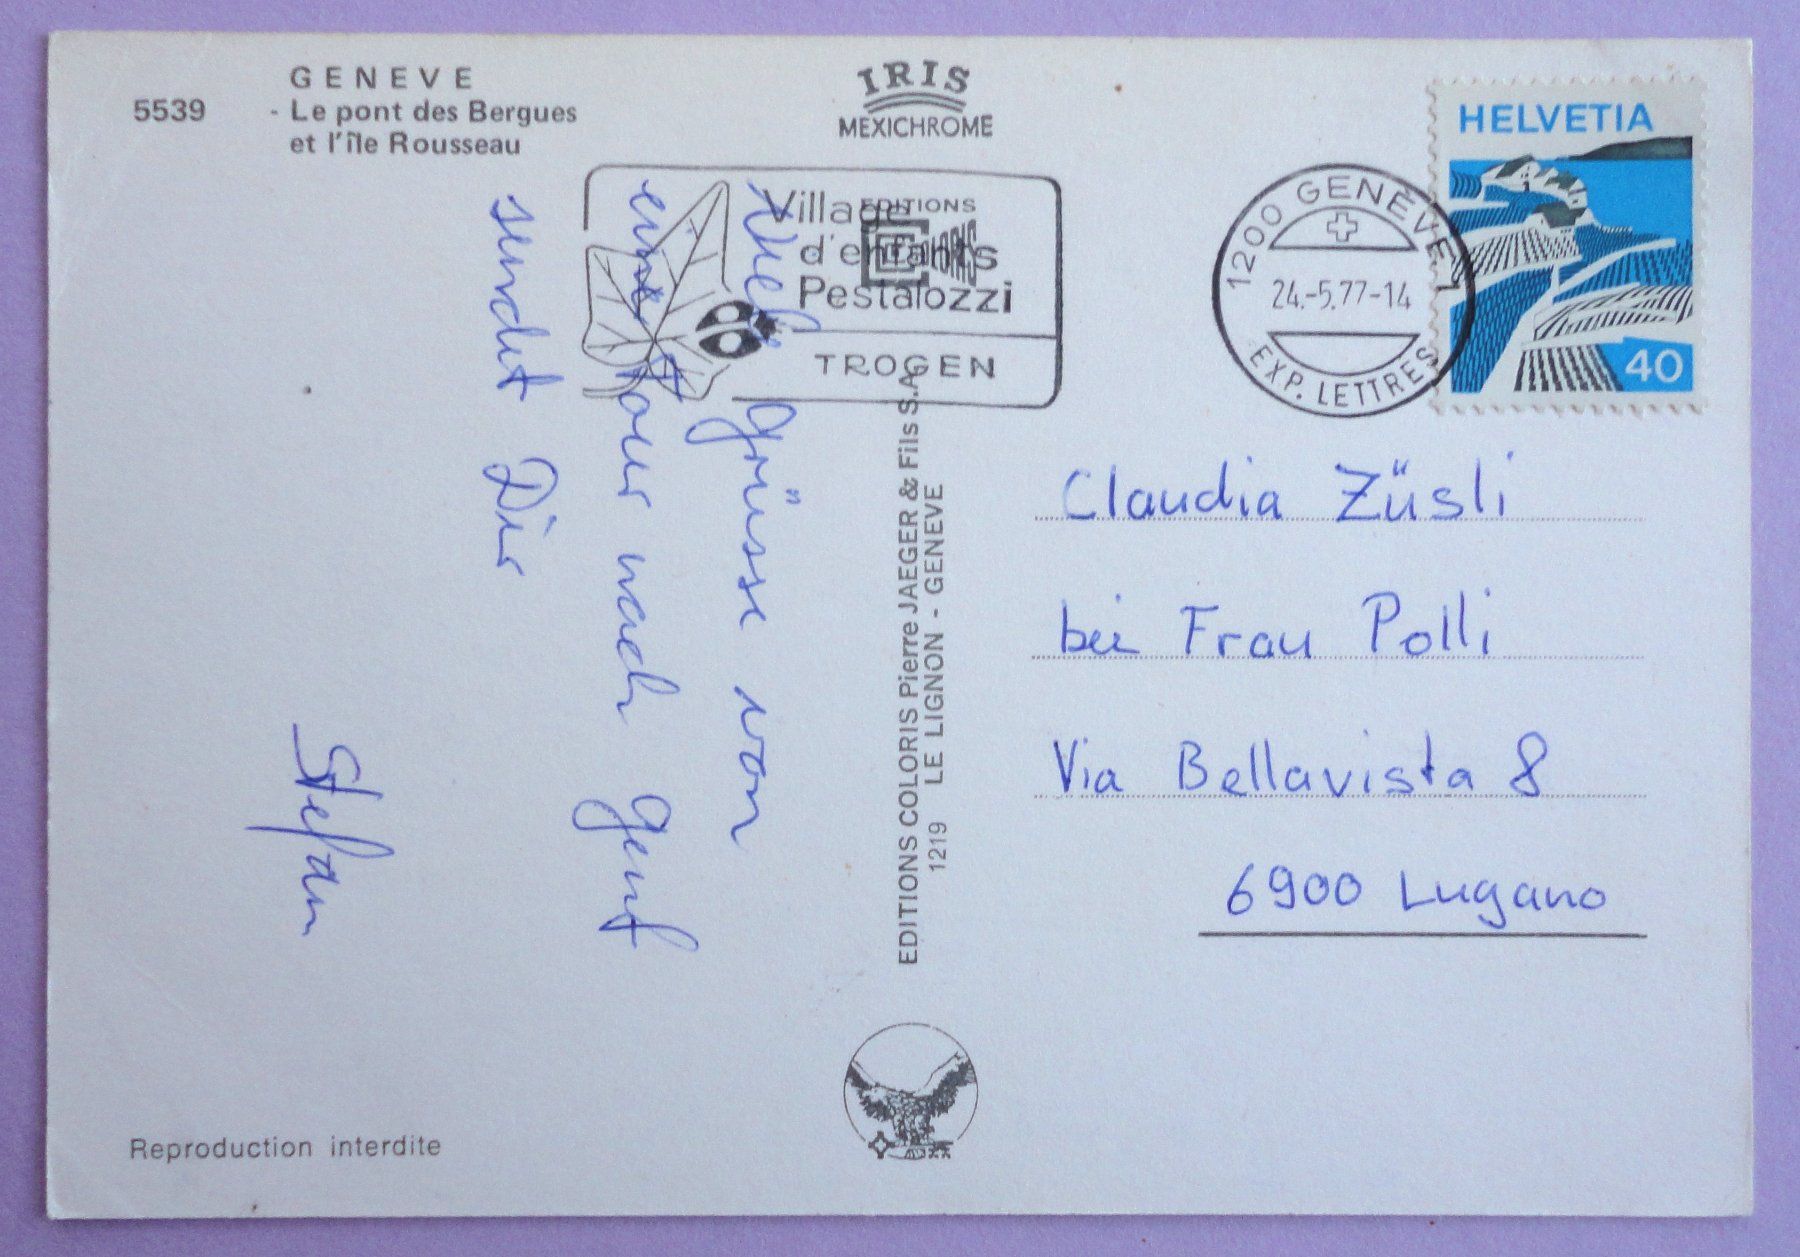 GENEVE
5539 - Le pont des Bergues
et l'île Rousseau
IRIS
MEXICHROME
EDITIONS
COLORIS
Village
d'enfants
Pestalozzi
TROGEN
1200 GENÈVE 1
24.-5.77-14
EXP. LETTRES
HELVETIA
40
Viele Grüsse von
einer Tour nach Genf
sendet Dir
Stefan
EDITIONS COLORIS Pierre JAEGER & Fils S.A.
1219 LE LIGNON - GENEVE
Claudia Züsli
bei Frau Polli
Via Bellavista 8
6900 Lugano
Reproduction interdite